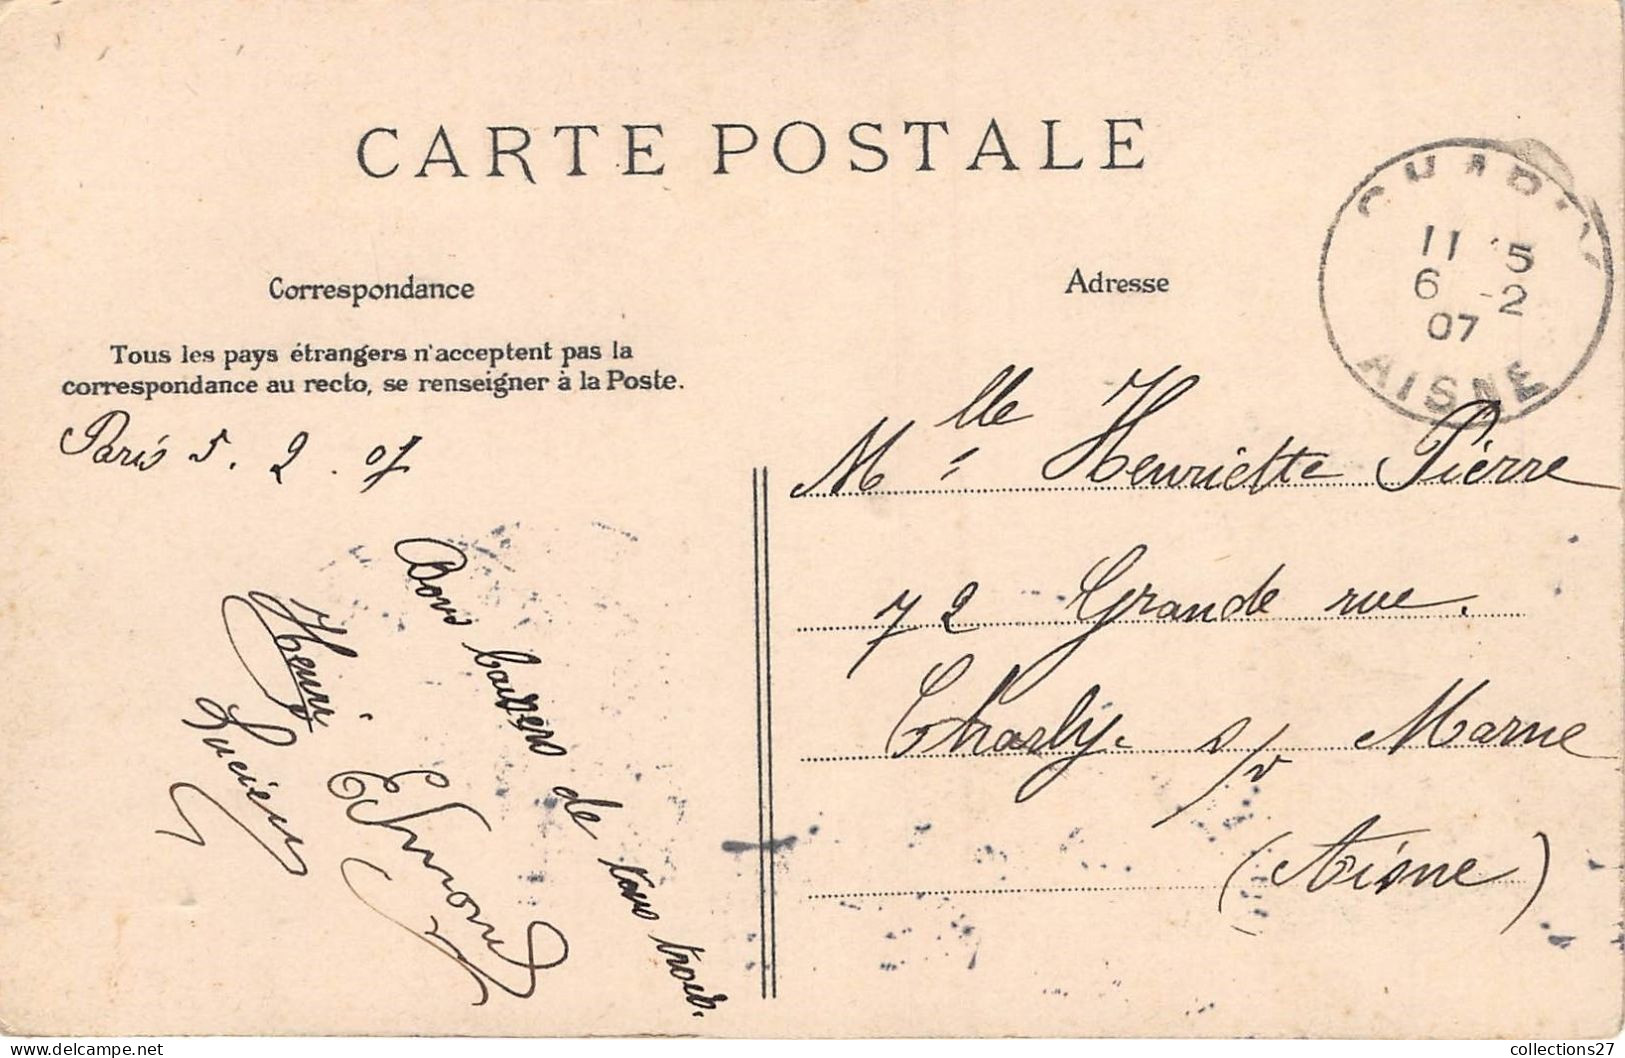 CARTE POSTALE
Correspondance
Tous les pays étrangers n'acceptent pas la
correspondance au recto, se renseigner à la Poste.
Paris 5. 2. 07
Bons baisers de tous trois.
Henri.
Edmond
Lucien
Adresse
11 5
6 -2
07
AISNE
Mlle Henriette Pierre
72 Grande rue.
Charly. s/v Marne
(Aisne)
collections27